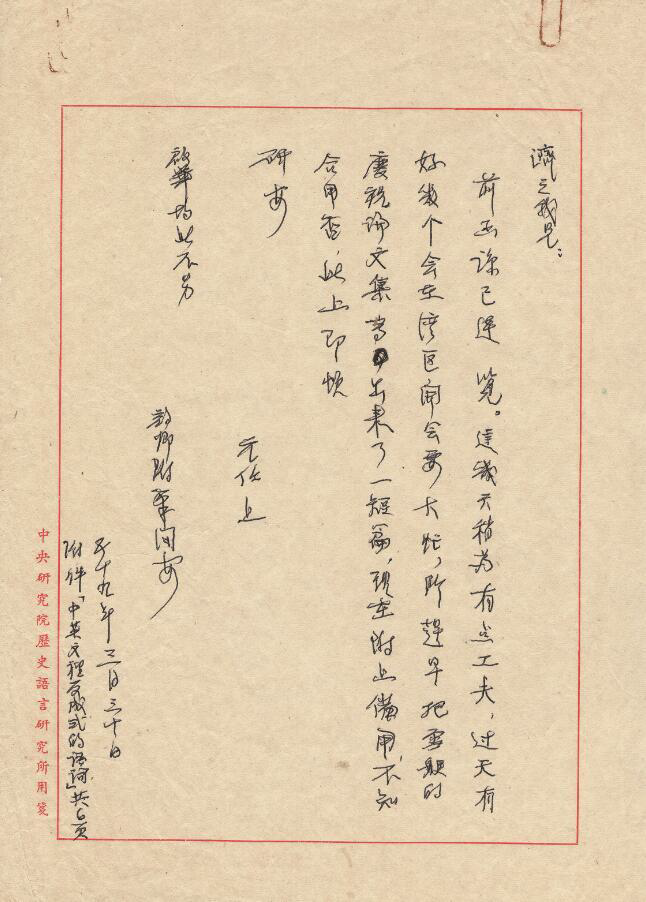 濟之我兄：
前函諒已達覽。這幾天稍為有点工夫，过天有
好幾个会在灣區開会要大忙，所趕早把雪艇的
慶祝論文集 出來了一短篇，現在附上備用，不知
合用否，此上即頌
研安
元任上
啟華均此不另
韵卿附筆問安
五十九年三月三十日
附件「中英文裡反成式的語詞」共6頁
中央研究院歷史語言研究所用箋